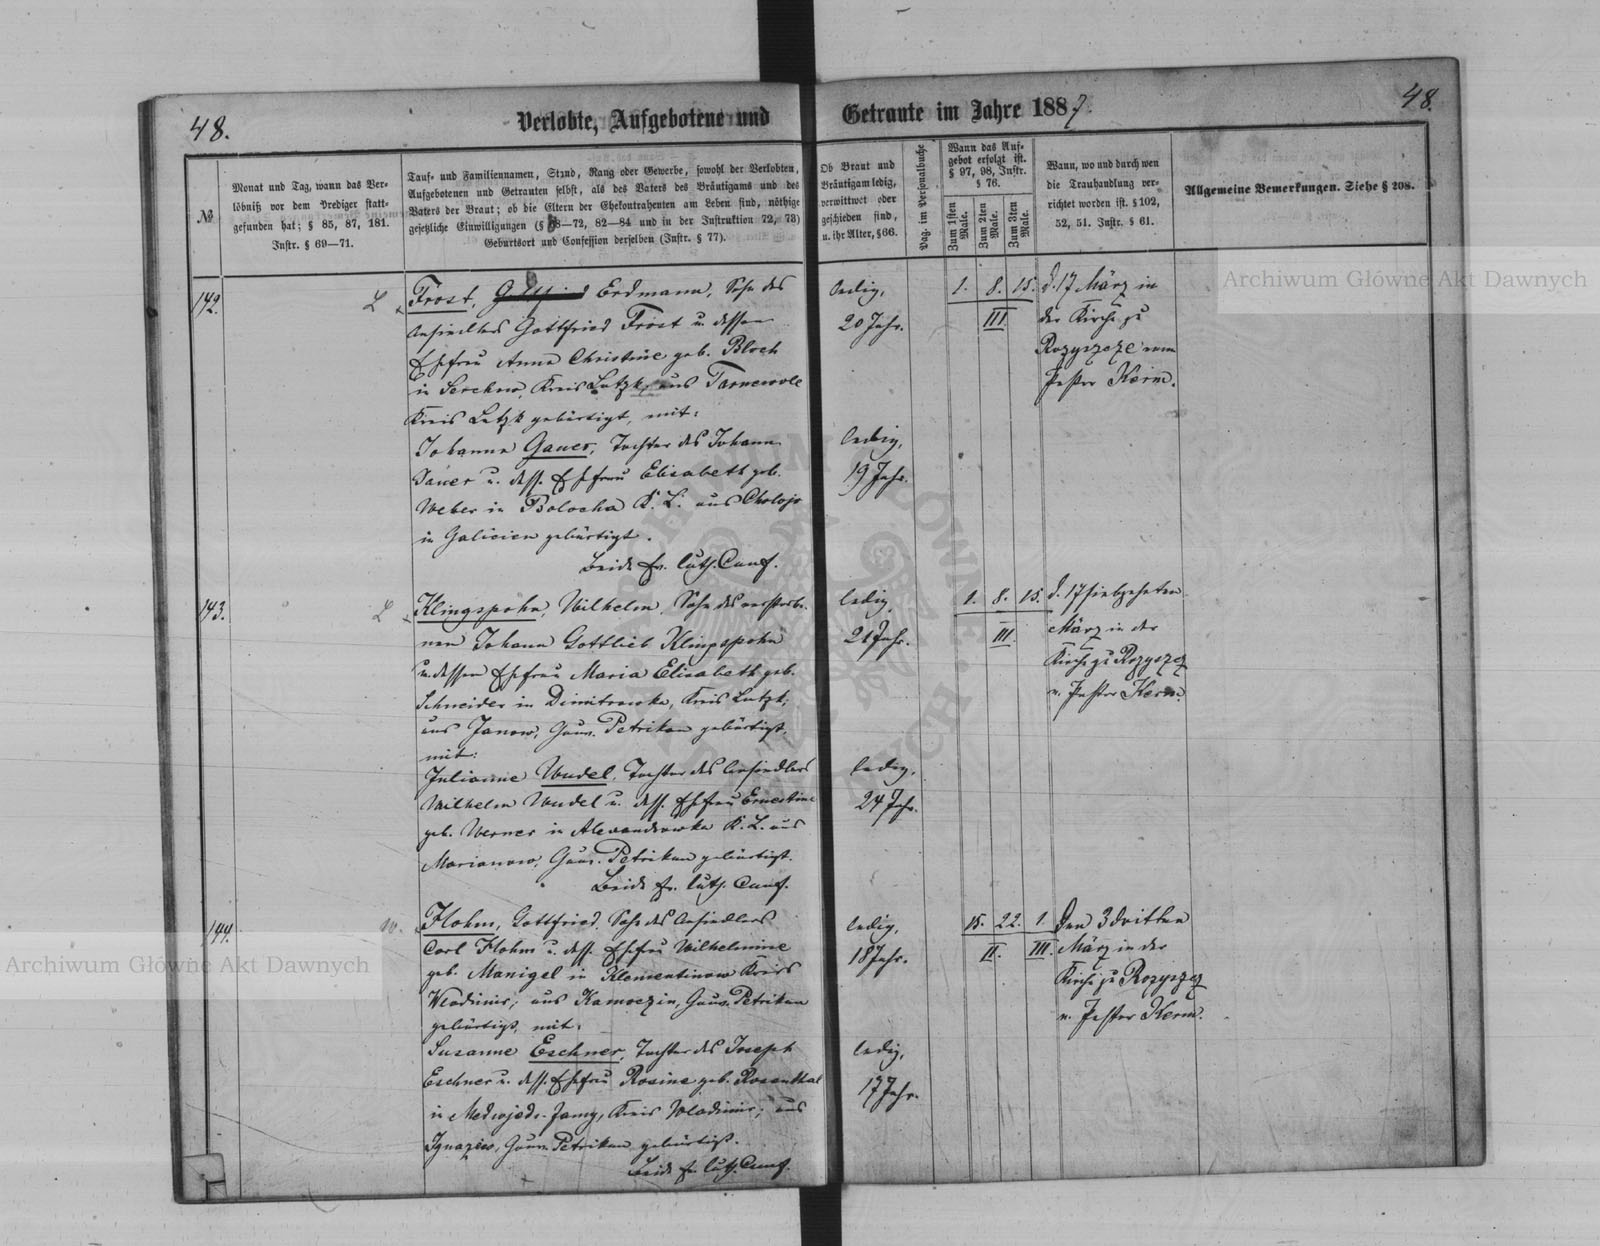 48.
Verlobte, Aufgebotene und Getraute im Jahre 1887.
48.
№
Monat und Tag, wann das Ver-
löbniß vor dem Prediger statt-
gefunden hat; § 85, 87, 181.
Instr. § 69—71.
Tauf- und Familiennamen, Stand, Rang oder Gewerbe, sowohl der Verlobten,
Aufgebotenen und Getrauten selbst, als des Vaters des Bräutigams und des
Vaters der Braut; ob die Eltern der Ehekontrahenten am Leben sind, nöthige
gesetzliche Einwilligungen (§ 68—72, 82—84 und in der Instruktion 72, 73)
Geburtsort und Confession derselben (Instr. § 77).
Ob Braut und
Bräutigam ledig,
verwittwet oder
geschieden sind,
u. ihr Alter, § 66.
Pag. im Personalbuche
Wann das Auf-
gebot erfolgt ist.
§ 97, 98, Instr.
§ 76.
Zum 1sten Male.
Zum 2ten Male.
Zum 3ten Male.
Wann, wo und durch wen
die Trauhandlung ver-
richtet worden ist. § 102,
52, 51. Instr. § 61.
Allgemeine Bemerkungen. Siehe § 208.
142.
L
Frost, Gottfried Erdmann, Sohn des
Ansiedlers Gottfried Frost u. dessen
Ehefrau Anna Christine geb. Bloch
in Serchow, Kreis Lutzk, aus Tarnowole
Kreis Lutzk gebürtigt, mit:
Johanna Gauer, Tochter des Johann
Gauer u. dess. Ehefrau Elisabeth geb.
Weber in Bolocha K. L. aus Cholojo
in Galicien gebürtigt.
Beide ev. luth. Conf.
ledig,
20 Jahr.
ledig,
19 Jahr.
1. 8. 15.
III.
d. 17 März in
der Kirche zu
Rozyszcze vom
Pastor Kerm.
143.
L
Klingspohn, Wilhelm, Sohn des verstorbe-
nen Johann Gottlieb Klingspohn
u. dessen Ehefrau Maria Elisabeth geb.
Schneider in Dimitrowka, Kreis Lutzk;
aus Janow, Gouv. Petrikau gebürtigt,
mit:
Julianne Wudel, Tochter des Ansiedlers
Wilhelm Wudel u. dess. Ehefrau Ernestine
geb. Werner in Alexandrowka K. L. aus
Marianow, Gouv. Petrikau gebürtigt.
Beide ev. luth. Conf.
ledig,
21 Jahr.
ledig,
24 Jahr.
1. 8. 15.
III.
d. 17 siebzehnten
März in der
Kirche zu Rozyszcz
v. Pastor Kerm.
144.
W.
Flohm, Gottfried, Sohn des Ansiedlers
Carl Flohm u. dess. Ehefrau Wilhelmine
geb. Manigel in Klementinow Kreis
Wladimir; aus Kamoczin, Gouv. Petrikau
gebürtigt, mit:
Susanne Eschner, Tochter des Joseph
Eschner u. dess. Ehefrau Rosine geb. Rosenthal
in Medwjedi-Jamy, Kreis Wladimir; aus
Ignazew, Gouv. Petrikau gebürtigt.
Beide ev. luth. Conf.
ledig,
18 Jahr.
ledig,
17 Jahr.
15. 22. 1.
II. III.
Den 3 dritten
März in der
Kirche zu Rozyszcz
v. Pastor Kerm.
Archiwum Główne Akt Dawnych
Archiwum Główne Akt Dawnych